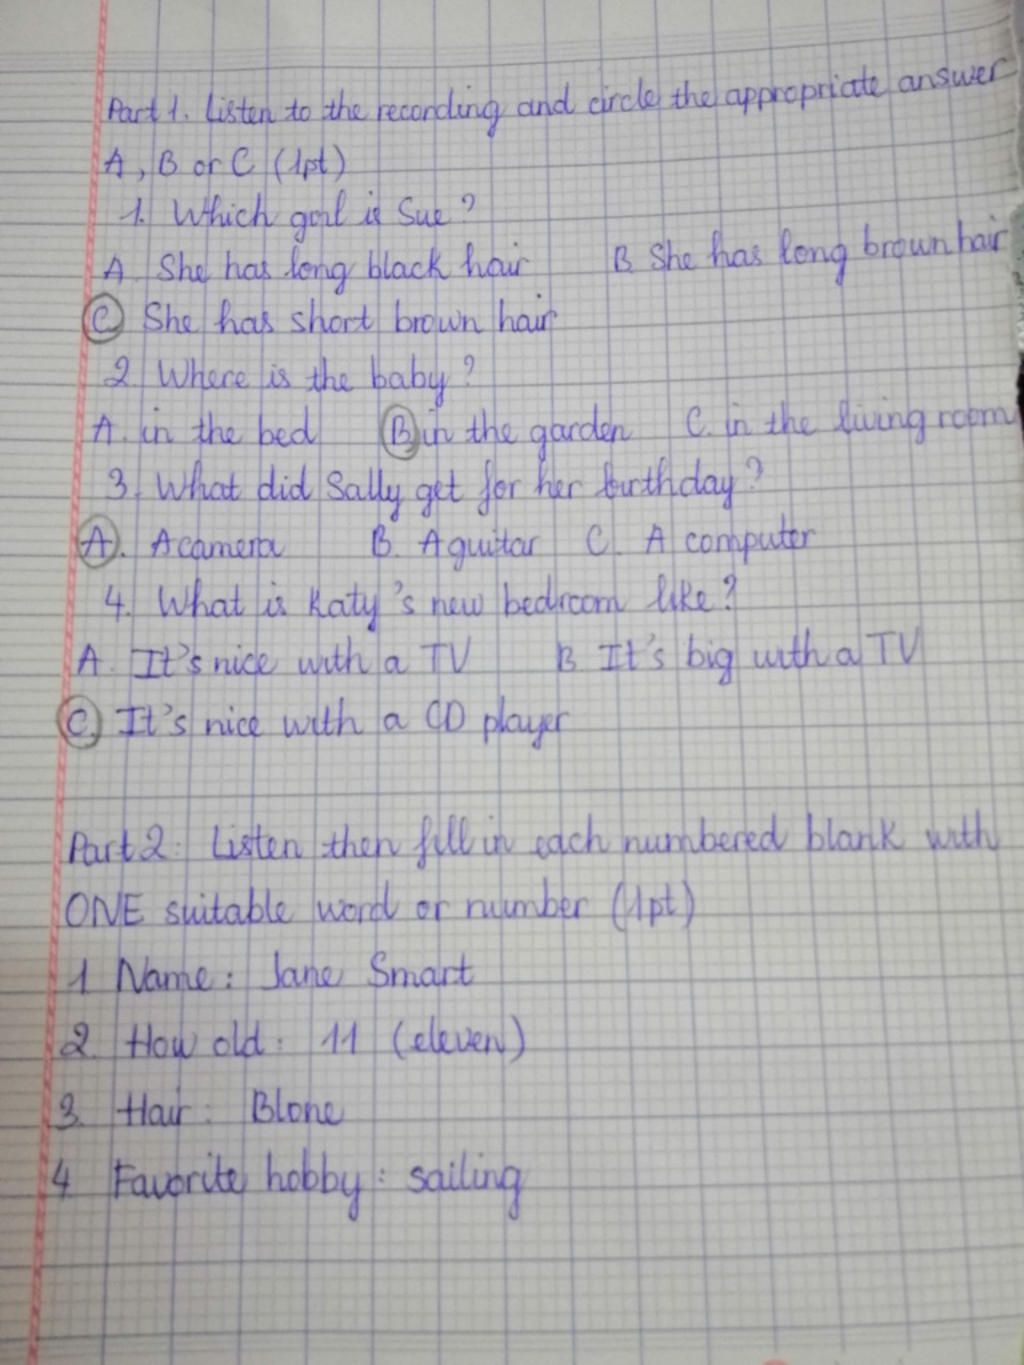 Part 1. Listen to the recording and circle the appropriate answer
A, B or C (1pt)
1. Which girl is Sue?
A. She has long black hair B. She has long brown hair
C. She has short brown hair
2. Where is the baby?
A. in the bed B. in the garden C. in the living room
3. What did Sally get for her birthday?
A. A camera B. A guitar C. A computer
4. What is Katy's new bedroom like?
A. It's nice with a TV B. It's big with a TV
C. It's nice with a CD player
Part 2: Listen then fill in each numbered blank with
ONE suitable word or number (1pt)
1 Name: Jane Smart
2. How old: 11 (eleven)
3. Hair: Blone
4 Favorite hobby: sailing